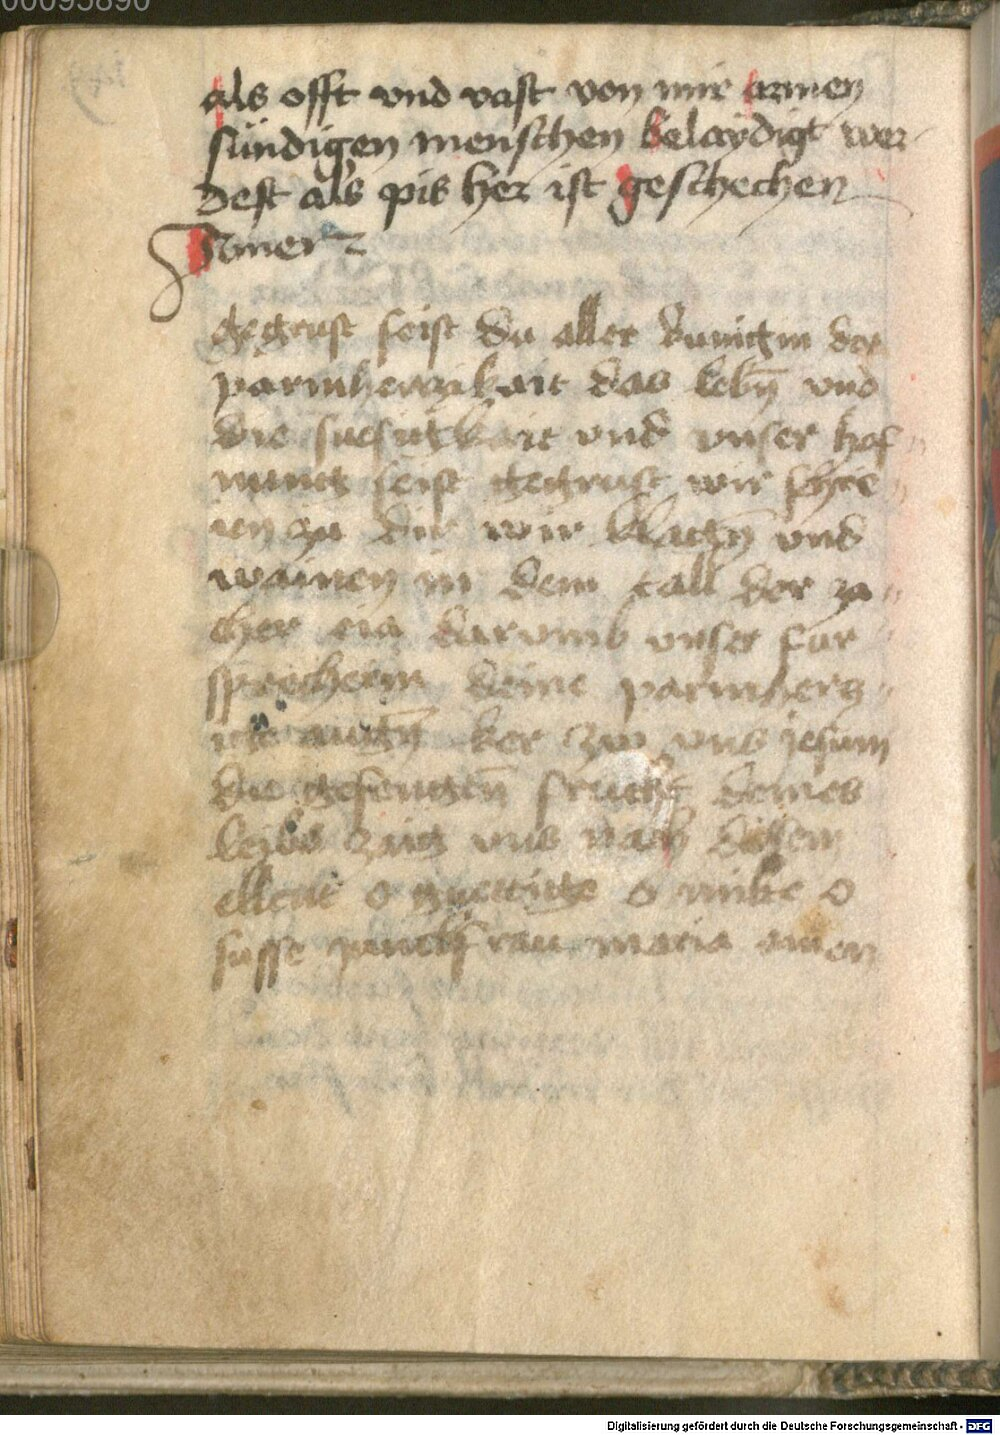 00095890
als offt vnd vast von mir armen
sündigen menschen belaydigt wer-
dest als pis her ist geschechen
Amen
gegrust seist du aller kunigin der
parmherczikait das lebn̄ vnd
die suesigkait vnd vnser hof
nung seist gegrust wir schre
ien zu dir wir klagn̄ vnd
wainen in dem tall der za
cher eia darvmb vnser fur
sprecherin deine parmhercz
ige augn̄ ker zw vns jesum
die gesengtn̄ frucht deines
leibs zaig vns nach disem
ellent o guettige o milte o
susse junckfrau maria amen
Digitalisierung gefördert durch die Deutsche Forschungsgemeinschaft - DFG